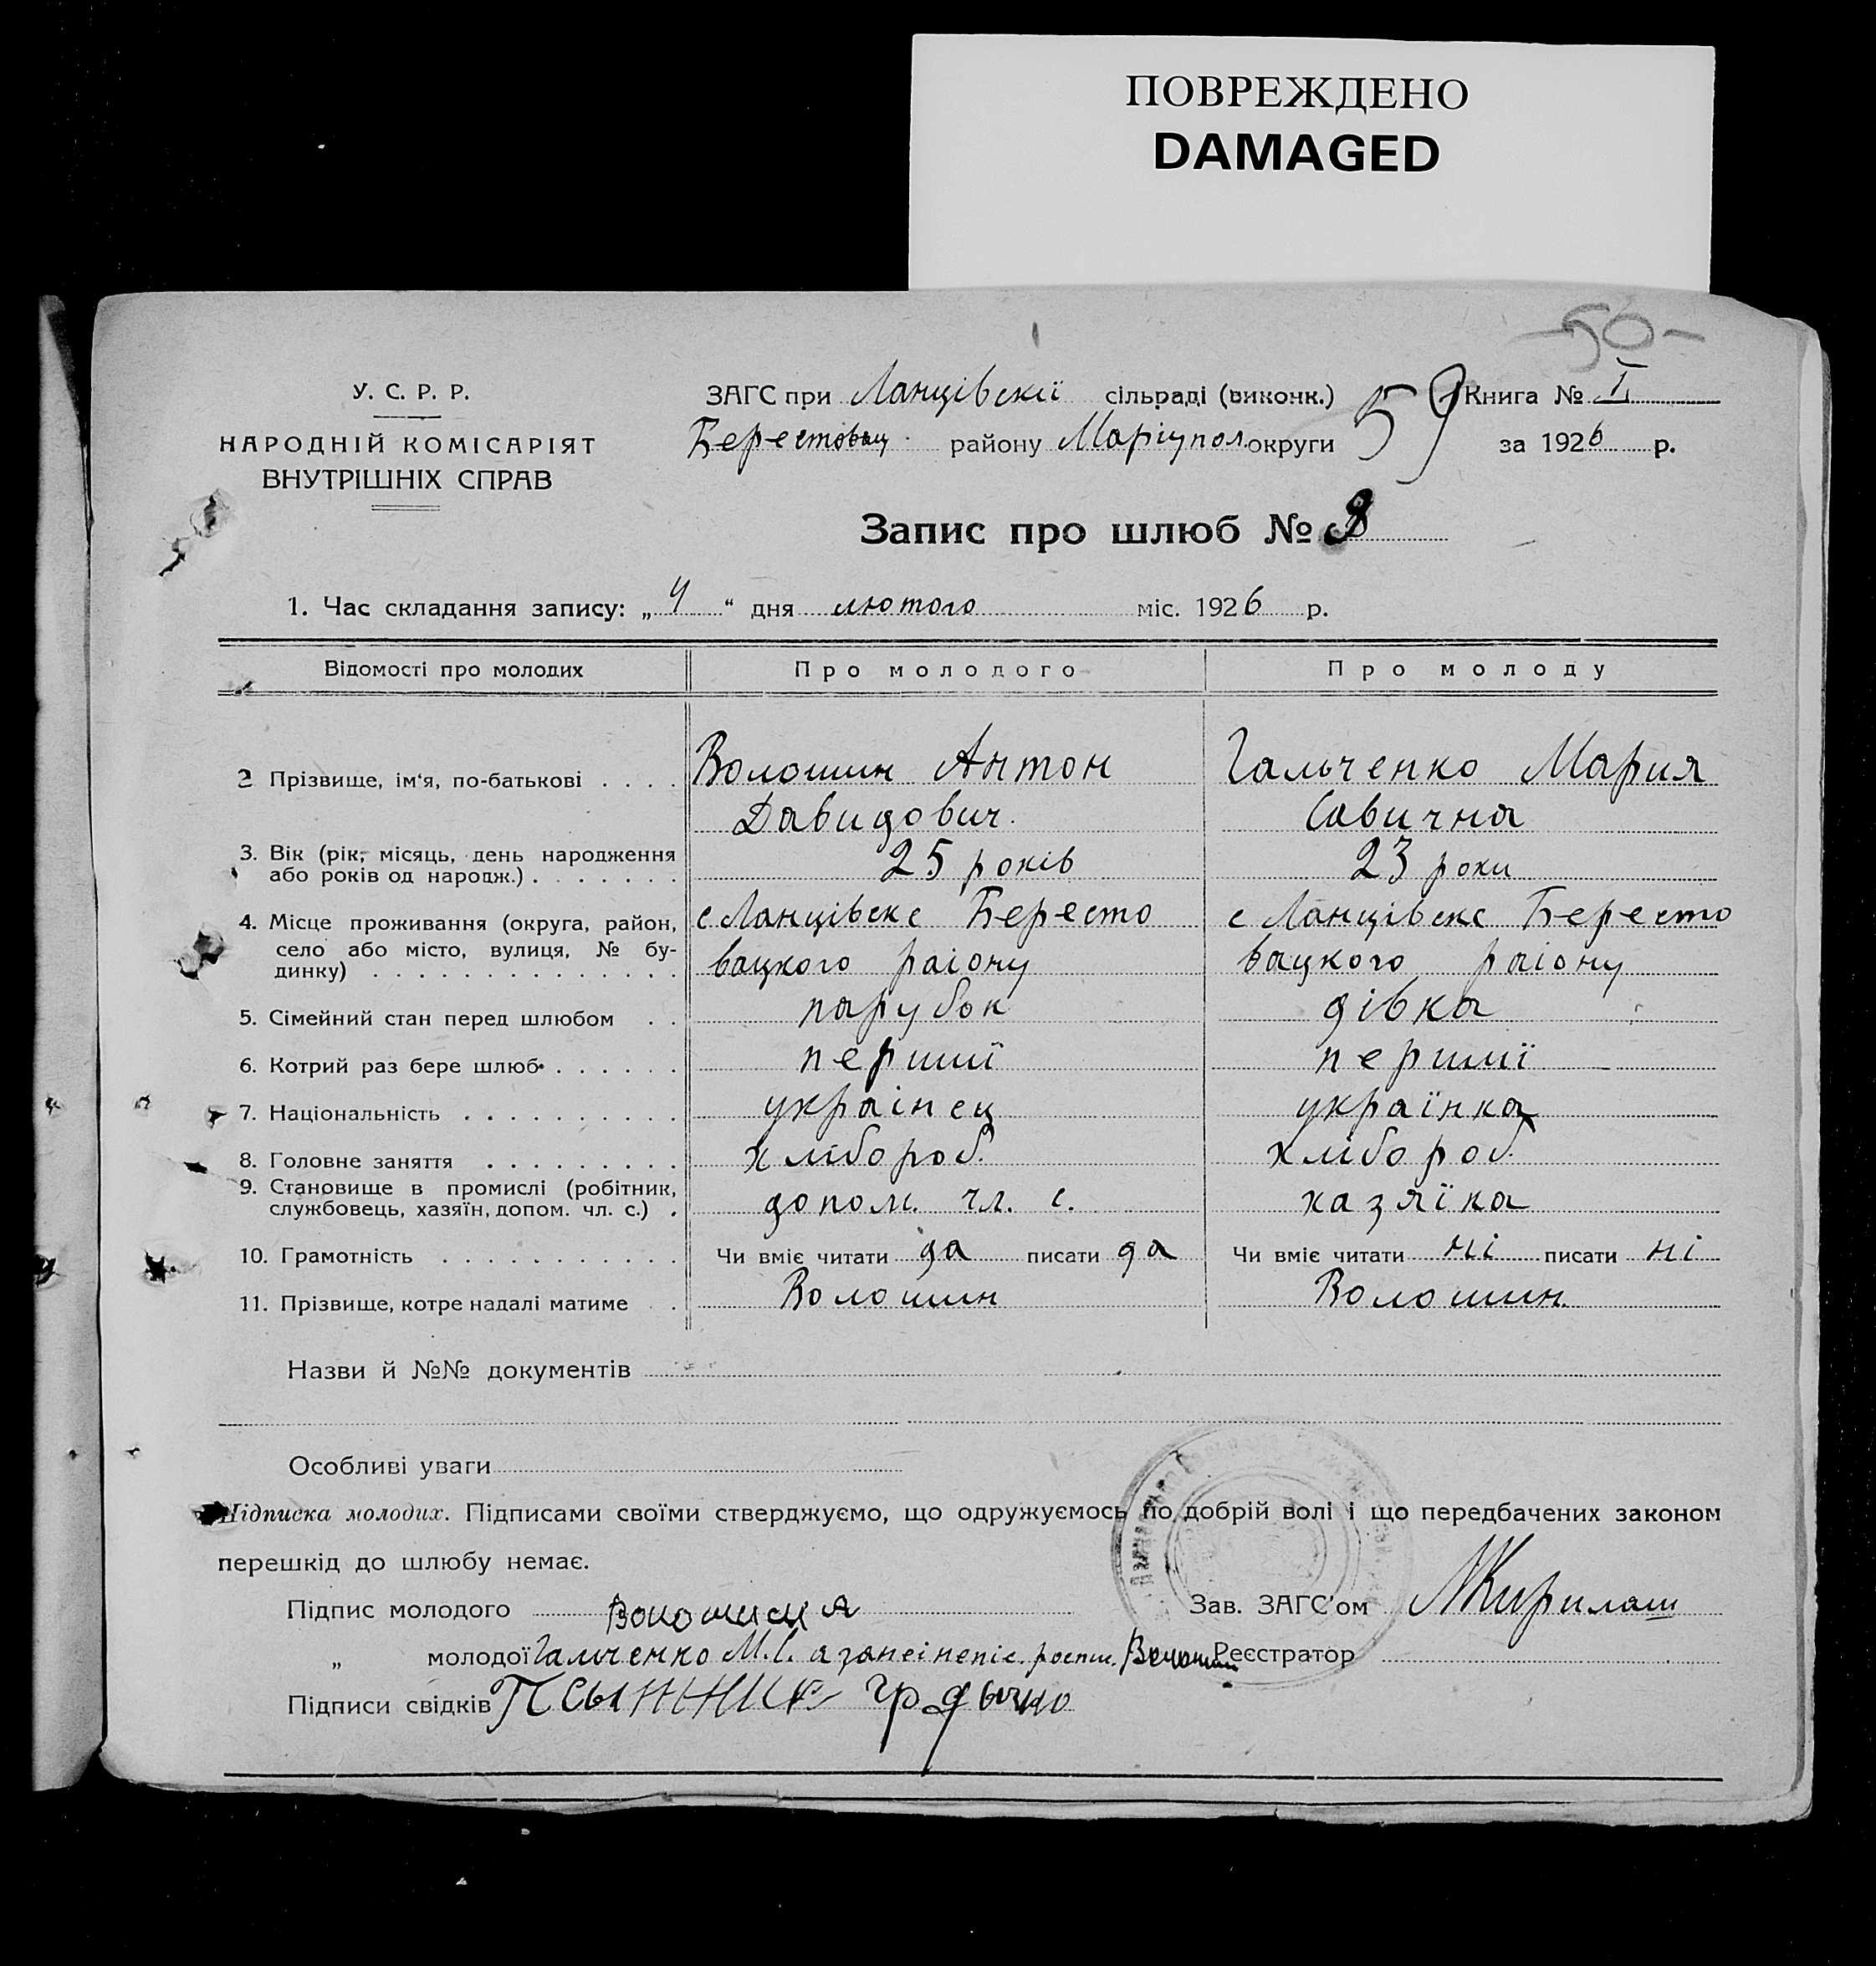 ПОВРЕЖДЕНО
DAMAGED
-50-
У. С. Р. Р.
НАРОДНІЙ КОМІСАРІЯТ
ВНУТРІШНІХ СПРАВ
ЗАГС при Ланцівскії сільраді (виконк.) 59 Книга № I
Берестовац. району Маріупол. округи за 1926 р.
Запис про шлюб №
1. Час складання запису: „4“ дня лютого міс. 1926 р.
Відомості про молодих Про молодого Про молоду
2 Прізвище, ім‘я, по-батькові . . . . Волошин Антон Гальченко Мария
Давидович. Савична
3. Вік (рік, місяць, день народження
або років од народж.) . . . . . . . 25 років 23 роки
4. Місце проживання (округа, район, с Ланцівске Бересто с Ланцівске Бересто
село або місто, вулиця, № бу-
динку) . . . . . . . . . . . . . . вацкого раіону вацкого раіону
5. Сімейний стан перед шлюбом . . парубок дівка
6. Котрий раз бере шлюб . . . . . . першиї першиї
7. Національність . . . . . . . . . . украінец українка
8. Головне заняття . . . . . . . . . хлібороб. хлібороб.
9. Становище в промислі (робітник,
службовець, хазяїн, допом. чл. с.) . допом. чл. с. хазяїка
10. Грамотність . . . . . . . . . . . Чи вміє читати да писати да Чи вміє читати ні писати ні
11. Прізвище, котре надалі матиме . . Волошин Волошин.
Назви й №№ документів
Особливі уваги
Підписка молодих. Підписами своїми стверджуємо, що одружуємось по добрій волі і що передбачених законом
перешкід до шлюбу немає.
Підпис молодого Волошин А Зав. ЗАГС’ом
„ молодої Гальченко М.С. а за неі непіс. роспис. Волошин Реєстратор
Підписи свідків